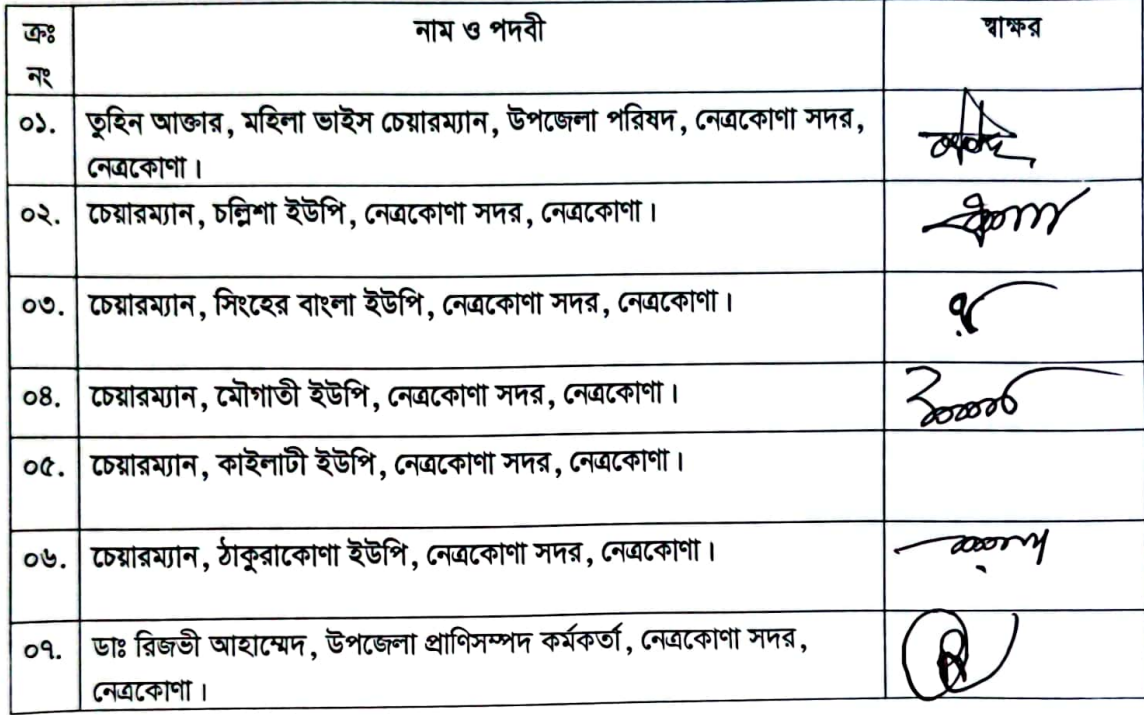 ক্রঃ নং নাম ও পদবী স্বাক্ষর
০১. তুহিন আক্তার, মহিলা ভাইস চেয়ারম্যান, উপজেলা পরিষদ, নেত্রকোণা সদর,
নেত্রকোণা।
০২. চেয়ারম্যান, চল্লিশা ইউপি, নেত্রকোণা সদর, নেত্রকোণা।
০৩. চেয়ারম্যান, সিংহের বাংলা ইউপি, নেত্রকোণা সদর, নেত্রকোণা।
০৪. চেয়ারম্যান, মৌগাতী ইউপি, নেত্রকোণা সদর, নেত্রকোণা।
০৫. চেয়ারম্যান, কাইলাটী ইউপি, নেত্রকোণা সদর, নেত্রকোণা।
০৬. চেয়ারম্যান, ঠাকুরাকোণা ইউপি, নেত্রকোণা সদর, নেত্রকোণা।
০৭. ডাঃ রিজভী আহাম্মেদ, উপজেলা প্রাণিসম্পদ কর্মকর্তা, নেত্রকোণা সদর,
নেত্রকোণা।